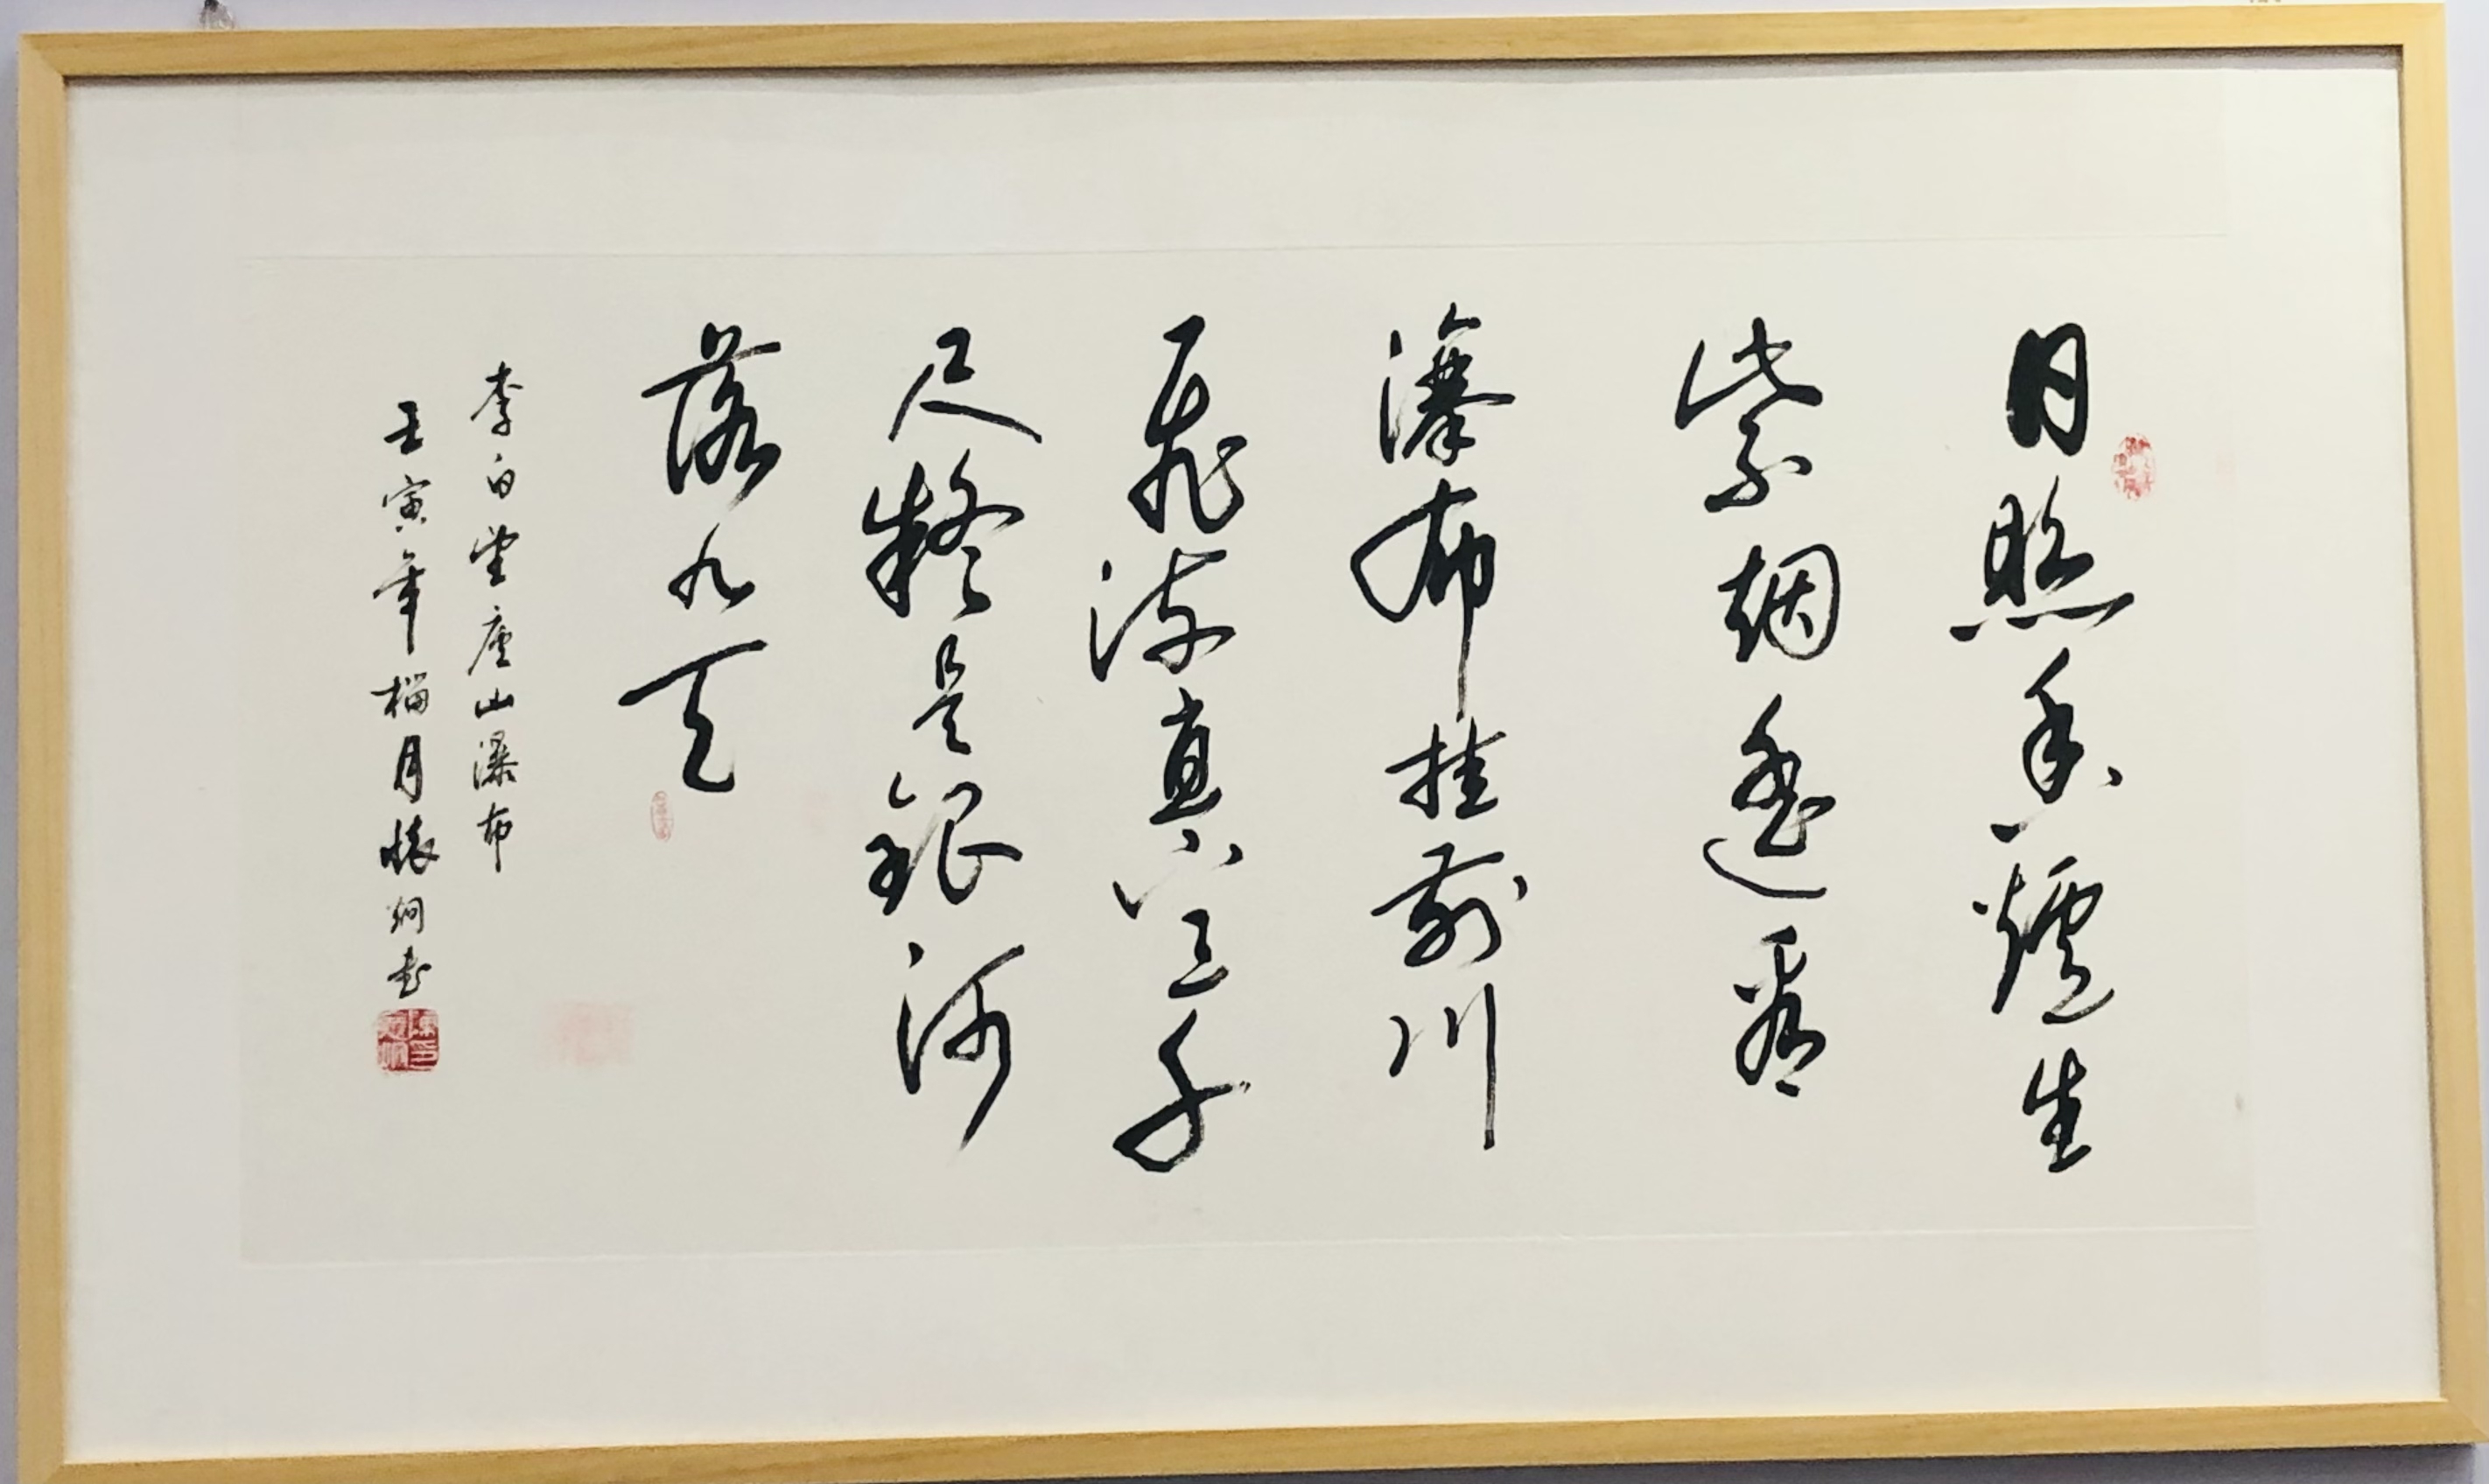 日照香爐生
紫烟遥看
瀑布挂前川
飛流直下三千
尺疑是銀河
落九天
李白望廬山瀑布
壬寅年榴月炯書